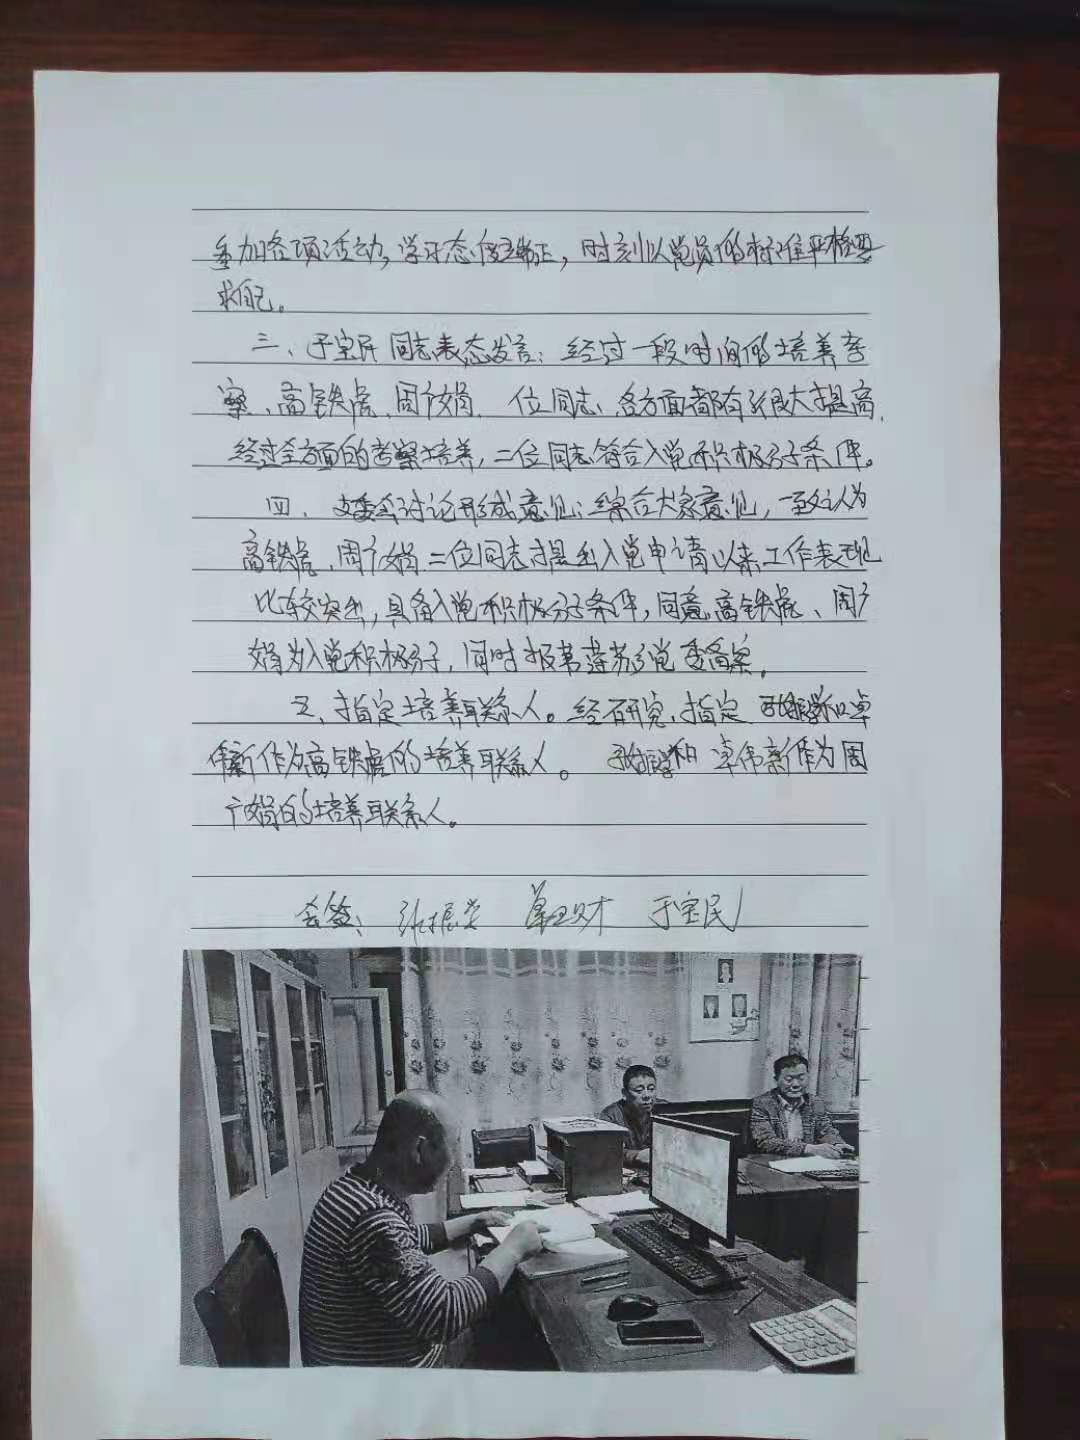 参加各项活动,学习态度端正,时刻以党员的标准严格要
求自己。
三、于宝民同志表态发言:经过一段时间的培养考
察、高铁虎、周广娟 位同志、各方面都有了很大提高,
经过全方面的考察培养,二位同志符合入党积极分子条件。
四、支委会讨论形成意见:综合大家意见,一致认为
高铁虎、周广娟二位同志提出入党申请以来工作表现
比较突出,具备入党积极分子条件,同意高铁虎、周广
娟为入党积极分子,同时报苇莲苏乡党委备案。
五、指定培养联系人。经研究,指定 和卓
伟新作为高铁虎的培养联系人。 和卓伟新作为周
广娟的培养联系人。
会签: 于宝民